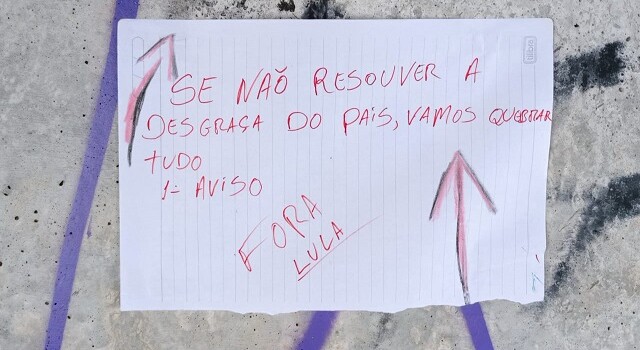 tilibra
SE NAÕ RESOUVER A
DESGRAÇA DO PAÍS, VAMOS QUEBRAR
TUDO
1- AVISO
FORA
LULA